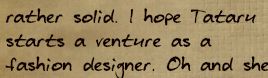 rather solid. I hope Tataru
starts a venture as a
fashion designer. Oh and she